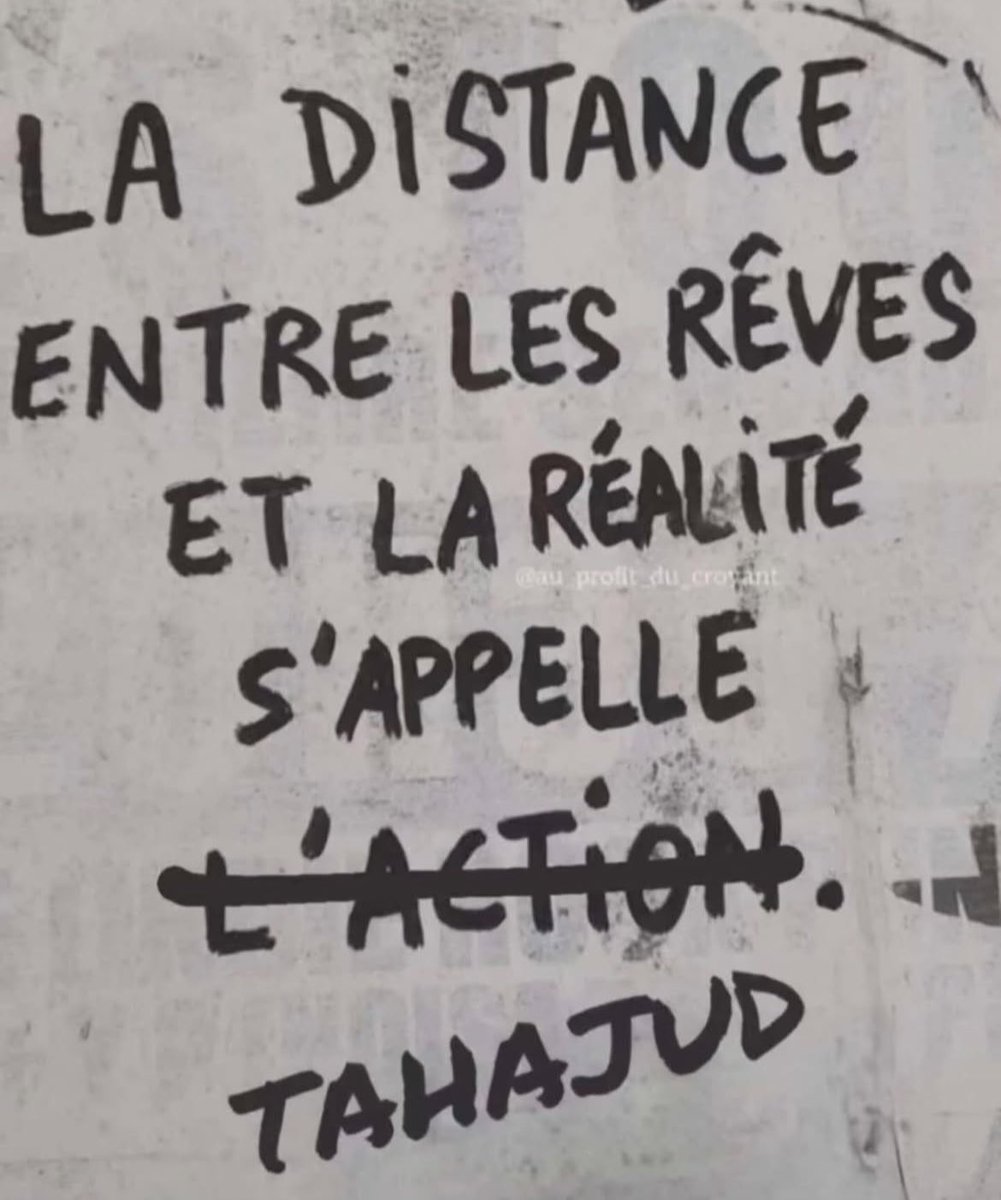 LA DiSTANCE
ENTRE LES RÊVES
ET LA RÉALiTÉ
@au_profit_du_croyant
S'APPELLE
L'ACTiON.
TAHAJUD